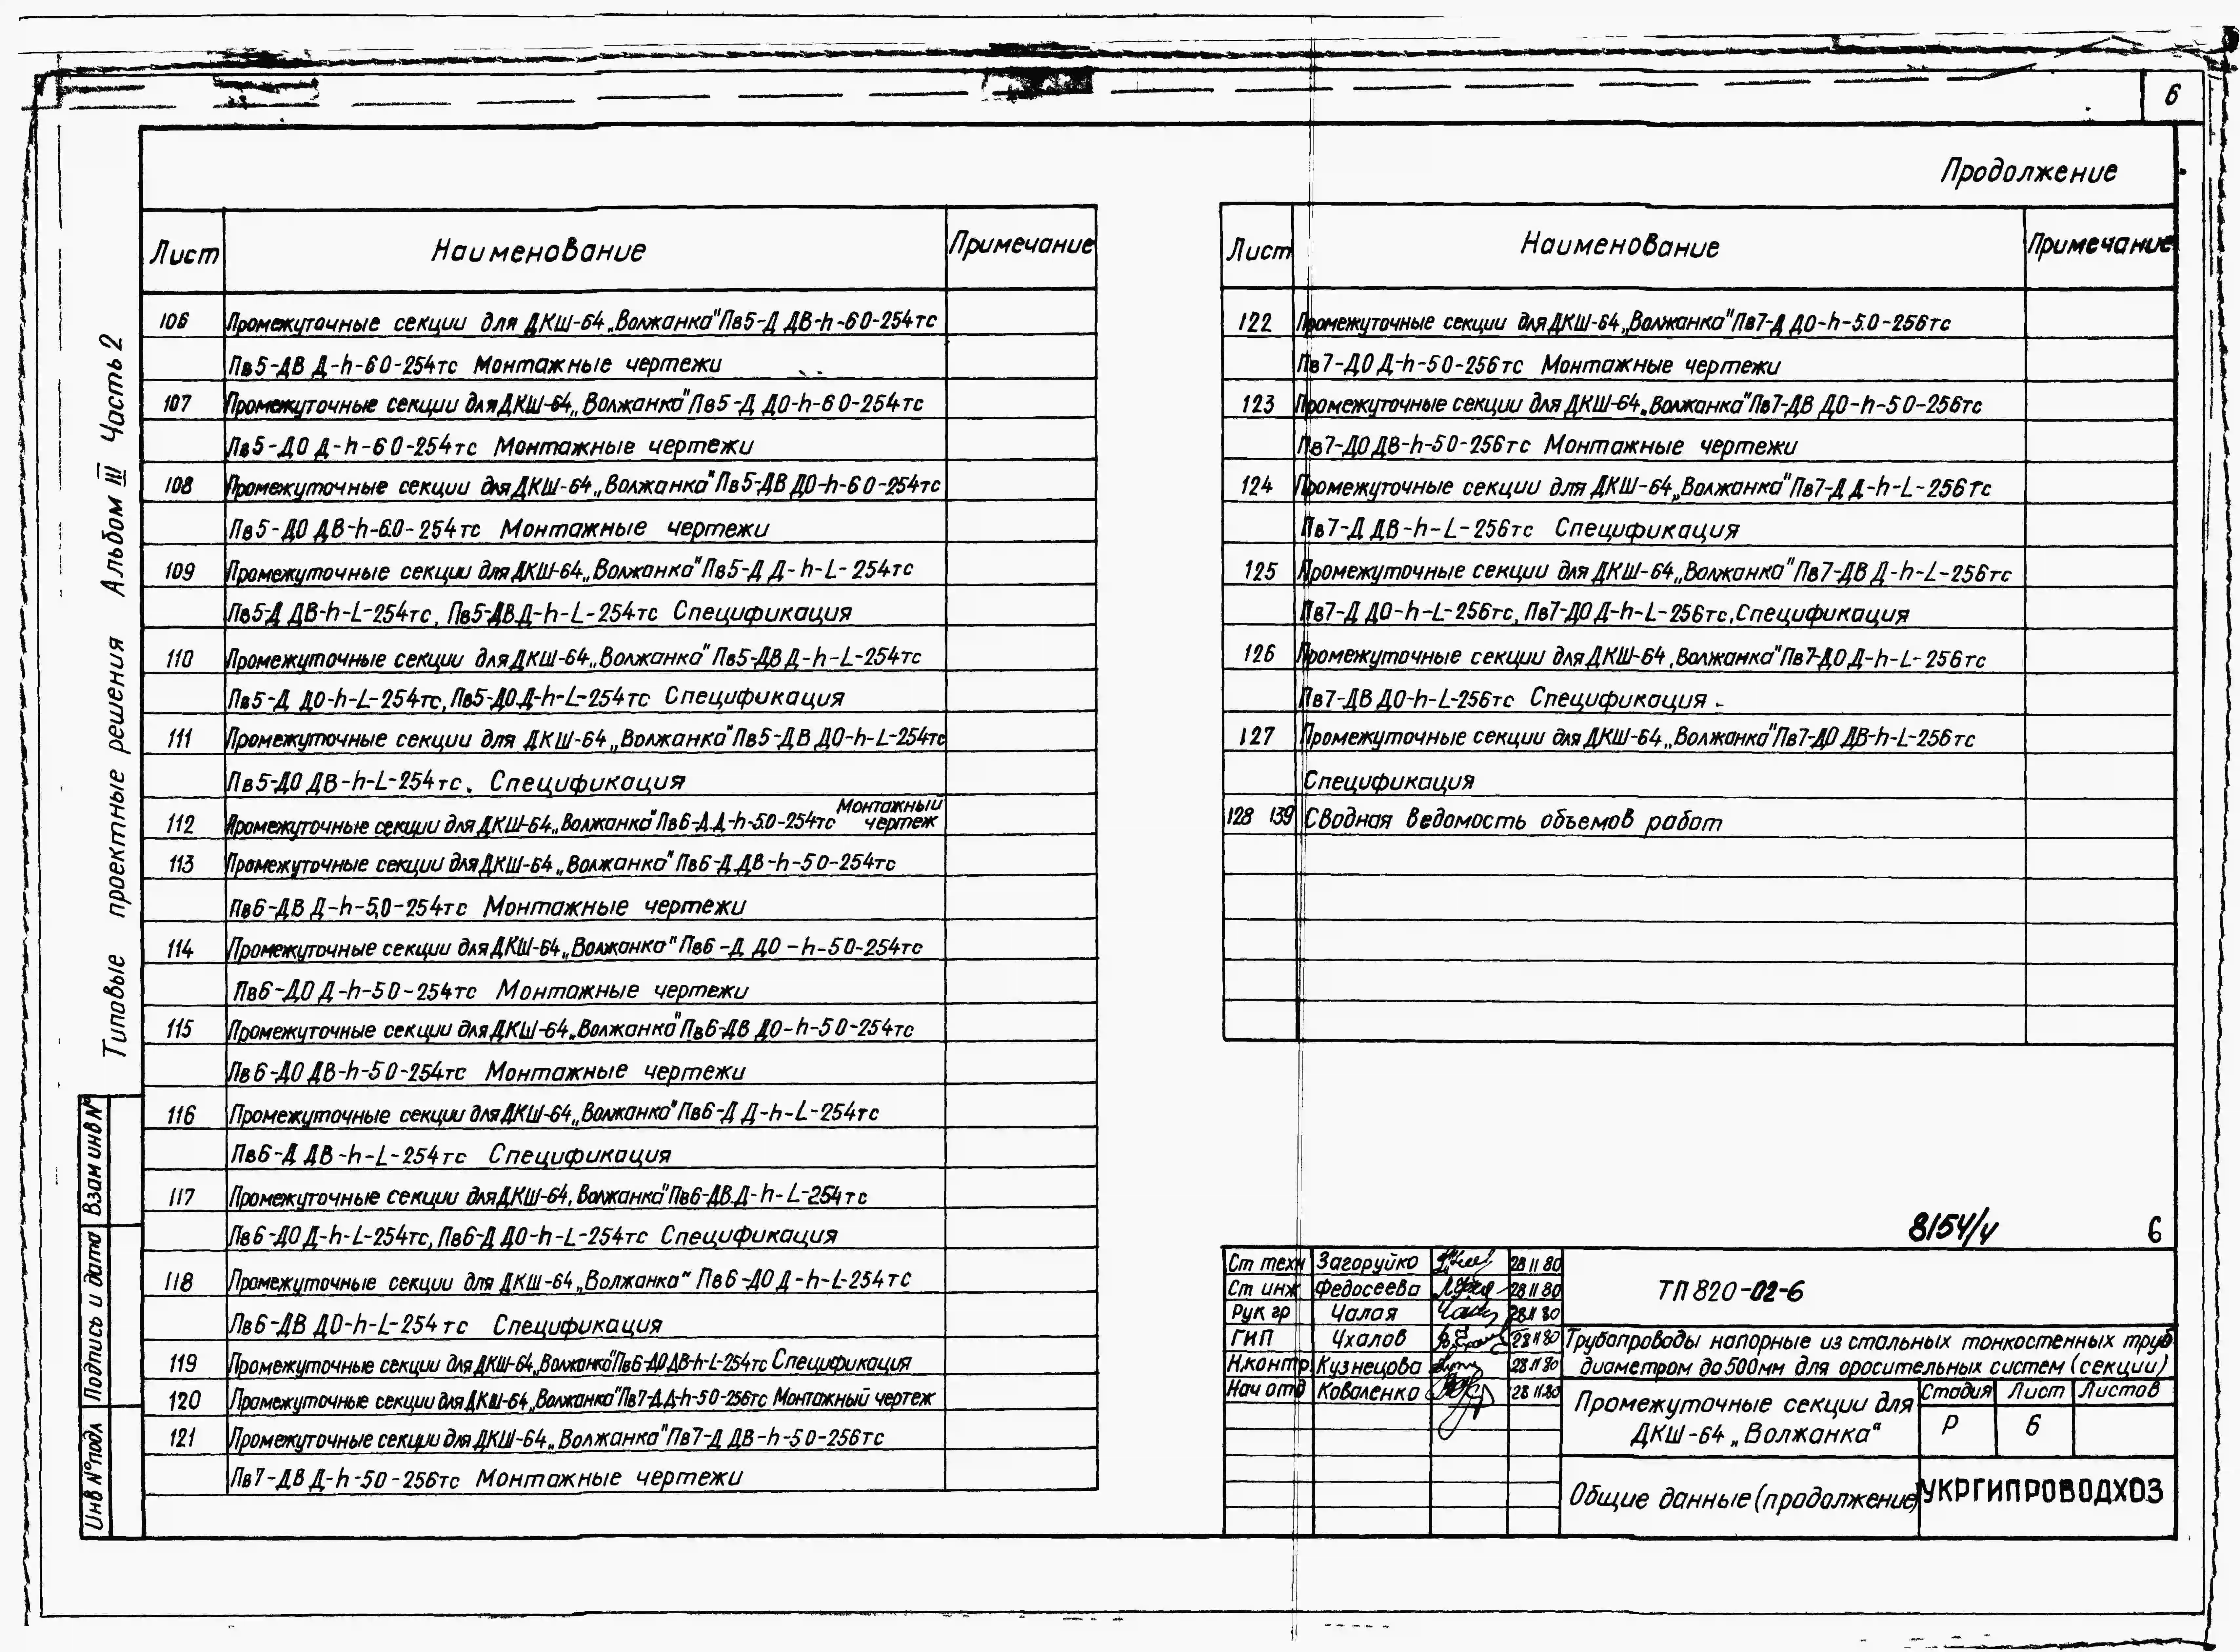 6
Продолжение
Типовые проектные решения Альбом III Часть 2
Лист Наименование Примечание
106 Промежуточные секции для ДКШ-64 „Волжанка" Пв5-Д ДВ-h-60-254тс
Пв5-ДВ Д-h-60-254тс Монтажные чертежи
107 Промежуточные секции для ДКШ-64 „Волжанка" Пв5-Д ДО-h-60-254тс
Пв5-ДО Д-h-60-254тс Монтажные чертежи
108 Промежуточные секции для ДКШ-64 „Волжанка" Пв5-ДВ ДО-h-60-254тс
Пв5-ДО ДВ-h-6.0-254тс Монтажные чертежи
109 Промежуточные секции для ДКШ-64 „Волжанка" Пв5-Д Д-h-L-254тс
Пв5-Д ДВ-h-L-254тс, Пв5-ДВ.Д-h-L-254тс Спецификация
110 Промежуточные секции для ДКШ-64 „Волжанка" Пв5-ДВ Д-h-L-254тс
Пв5-Д ДО-h-L-254тс, Пв5-ДО.Д-h-L-254тс Спецификация
111 Промежуточные секции для ДКШ-64 „Волжанка" Пв5-ДВ ДО-h-L-254тс
Пв5-ДО ДВ-h-L-254тс. Спецификация
112 Промежуточные секции для ДКШ-64 „Волжанка" Пв6-Д.Д-h-5.0-254тс Монтажный чертеж
113 Промежуточные секции для ДКШ-64 „Волжанка" Пв6-Д.ДВ-h-50-254тс
Пв6-ДВ Д-h-5,0-254тс Монтажные чертежи
114 Промежуточные секции для ДКШ-64 „Волжанка" Пв6-Д ДО-h-50-254тс
Пв6-ДО Д-h-50-254тс Монтажные чертежи
115 Промежуточные секции для ДКШ-64 „Волжанка" Пв6-ДВ ДО-h-50-254тс
Пв6-ДО ДВ-h-50-254тс Монтажные чертежи
116 Промежуточные секции для ДКШ-64 „Волжанка" Пв6-Д Д-h-L-254тс
Пв6-Д ДВ-h-L-254тс Спецификация
117 Промежуточные секции для ДКШ-64, Волжанка" Пв6-ДВ.Д-h-L-254тс
Пв6-ДО Д-h-L-254тс, Пв6-Д ДО-h-L-254тс Спецификация
118 Промежуточные секции для ДКШ-64 „Волжанка" Пв6-ДО Д-h-L-254тс
Пв6-ДВ ДО-h-L-254тс Спецификация
119 Промежуточные секции для ДКШ-64 „Волжанка" Пв6-ДО ДВ-h-L-254тс Спецификация
120 Промежуточные секции для ДКШ-64 „Волжанка" Пв7-Д.Д-h-50-256тс Монтажный чертеж
121 Промежуточные секции для ДКШ-64 „Волжанка" Пв7-Д ДВ-h-50-256тс
Пв7-ДВ Д-h-50-256тс Монтажные чертежи
Лист Наименование Примечание
122 Промежуточные секции для ДКШ-64 „Волжанка" Пв7-Д ДО-h-5.0-256тс
Пв7-ДО Д-h-50-256тс Монтажные чертежи
123 Промежуточные секции для ДКШ-64 „Волжанка" Пв7-ДВ ДО-h-50-256тс
Пв7-ДО ДВ-h-50-256тс Монтажные чертежи
124 Промежуточные секции для ДКШ-64 „Волжанка" Пв7-Д Д-h-L-256тс
Пв7-Д ДВ-h-L-256тс Спецификация
125 Промежуточные секции для ДКШ-64 „Волжанка" Пв7-ДВ Д-h-L-256тс
Пв7-Д ДО-h-L-256тс, Пв7-ДО Д-h-L-256тс. Спецификация
126 Промежуточные секции для ДКШ-64 „Волжанка" Пв7-ДО Д-h-L-256тс
Пв7-ДВ ДО-h-L-256тс Спецификация
127 Промежуточные секции для ДКШ-64 „Волжанка" Пв7-ДО ДВ-h-L-256тс
Спецификация
128 139 Сводная ведомость объемов работ
8154/4 6
Ст техн Загоруйко 28 11 80
Ст инж Федосеева 28 11 80
Рук гр Чалая 28 11 80
ГИП Чхалов 28 11 80
Н.контр Кузнецова 28 11 80
Нач отд Коваленко 28 11.80
ТП 820-02-6
Трубопроводы напорные из стальных тонкостенных труб
диаметром до 500мм для оросительных систем (секции)
Промежуточные секции для
ДКШ-64 „Волжанка"
Стадия Лист Листов
Р 6
Общие данные (продолжение)
УКРГИПРОВОДХОЗ
Взам инв №
Подпись и дата
Инв № подл